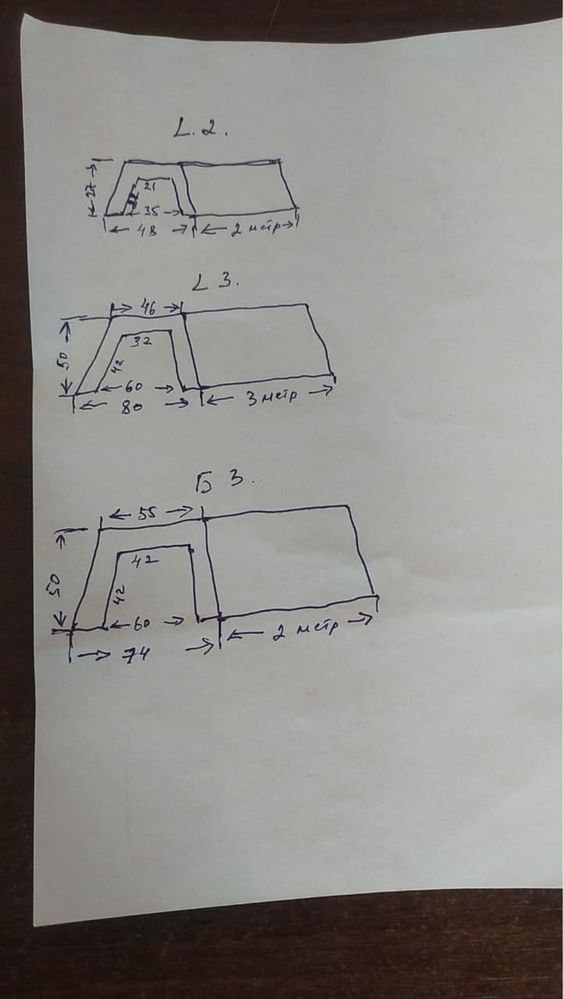 L.2.
27
21
35
48
2 метр
L 3.
46
50
32
42
60
80
3 метр
Б 3.
55
50
42
42
60
74
2 метр